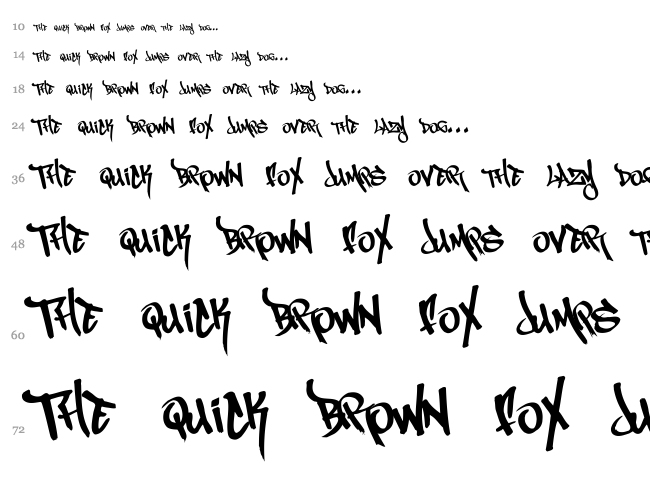 10 THE QUiCK BROWN FOX JUMPS OVER THE LAZY DOG...
14 THE QUiCK BROWN FOX JUMPS OVER THE LAZY DOG...
18 THE QUiCK BROWN FOX JUMPS OVER THE LAZY DOG...
24 THE QUiCK BROWN FOX JUMPS OVER THE LAZY DOG...
36 THE QUiCK BROWN FOX JUMPS OVER THE LAZY DOG
48 THE QUiCK BROWN FOX JUMPS OVER T
60 THE QUiCK BROWN FOX JUMPS
72 THE QUiCK BROWN FOX JU